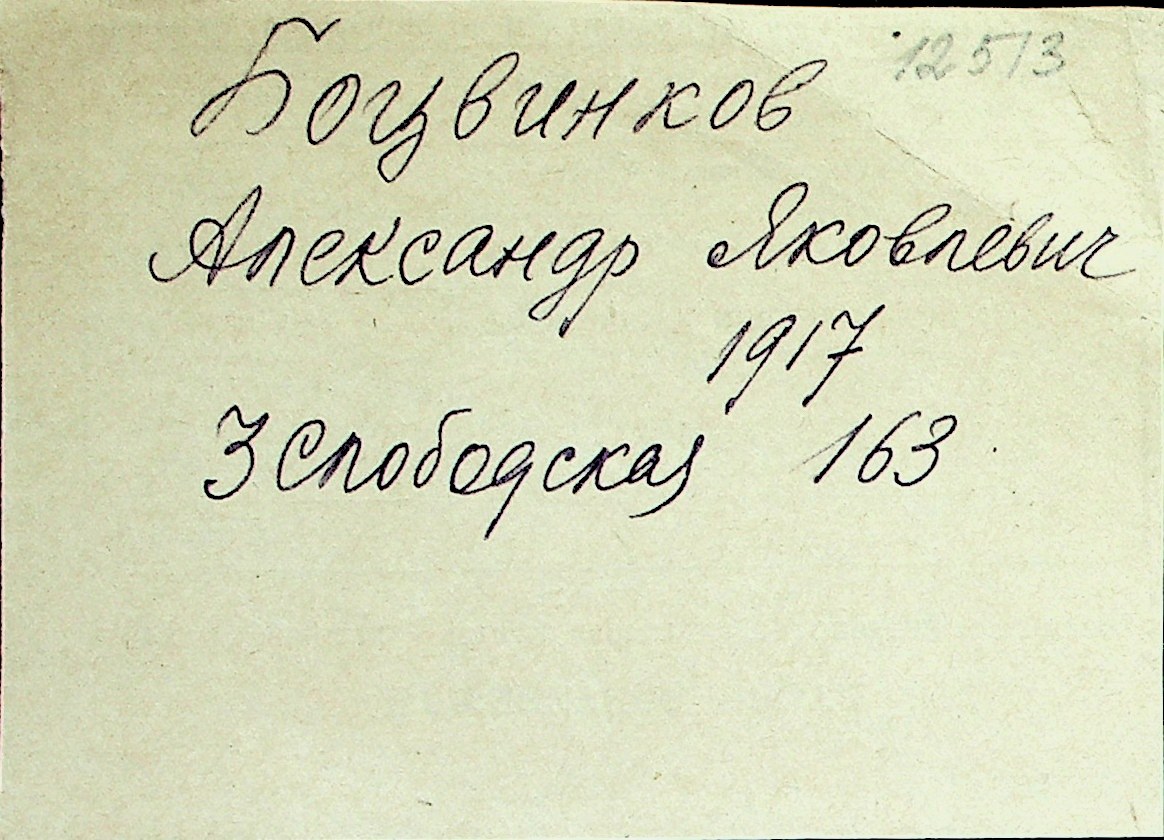 12513
Боцвинков
Александр Яковлевич
1917
3 Слободская 163